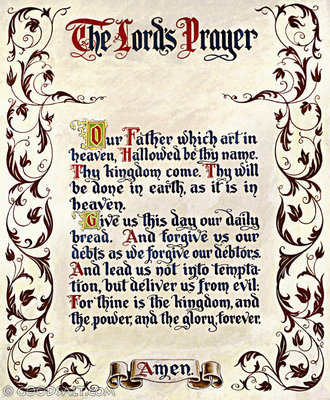 The Lord's Prayer
Our Father which art in
heaven, Hallowed be thy name.
Thy kingdom come. Thy will
be done in earth, as it is in
heaven.
Give us this day our daily
bread. And forgive us our
debts as we forgive our debtors.
And lead us not into tempta-
tion, but deliver us from evil:
For thine is the kingdom, and
the power, and the glory, forever.
Amen.
© GOODSALT.COM